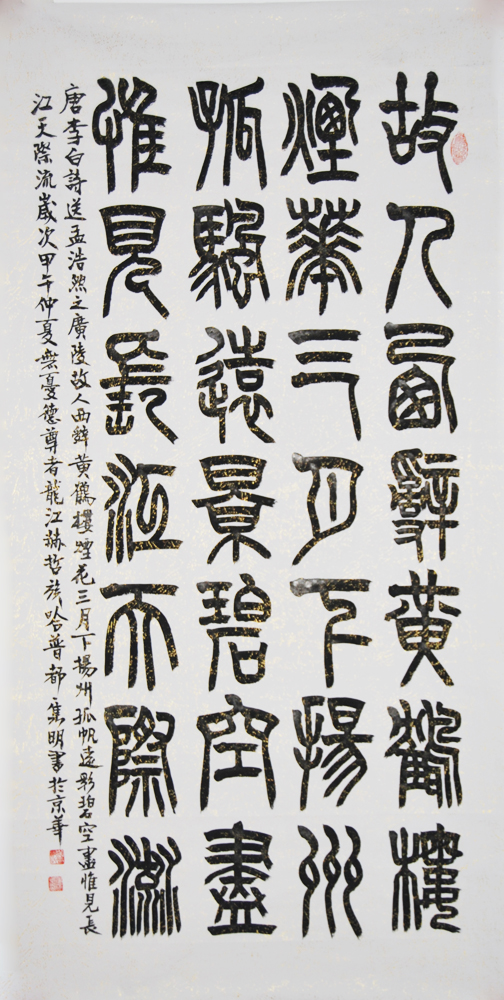 故人西辭黃鶴樓
煙華三月下揚州
孤帆遠景碧空盡
惟見長江天際流
唐李白詩送孟浩然之廣陵故人西辭黃鶴樓煙花三月下揚州孤帆遠影碧空盡惟見長
江天際流歲次甲午仲夏無憂德尊者龍江赫哲族哈普都隽明書於京華